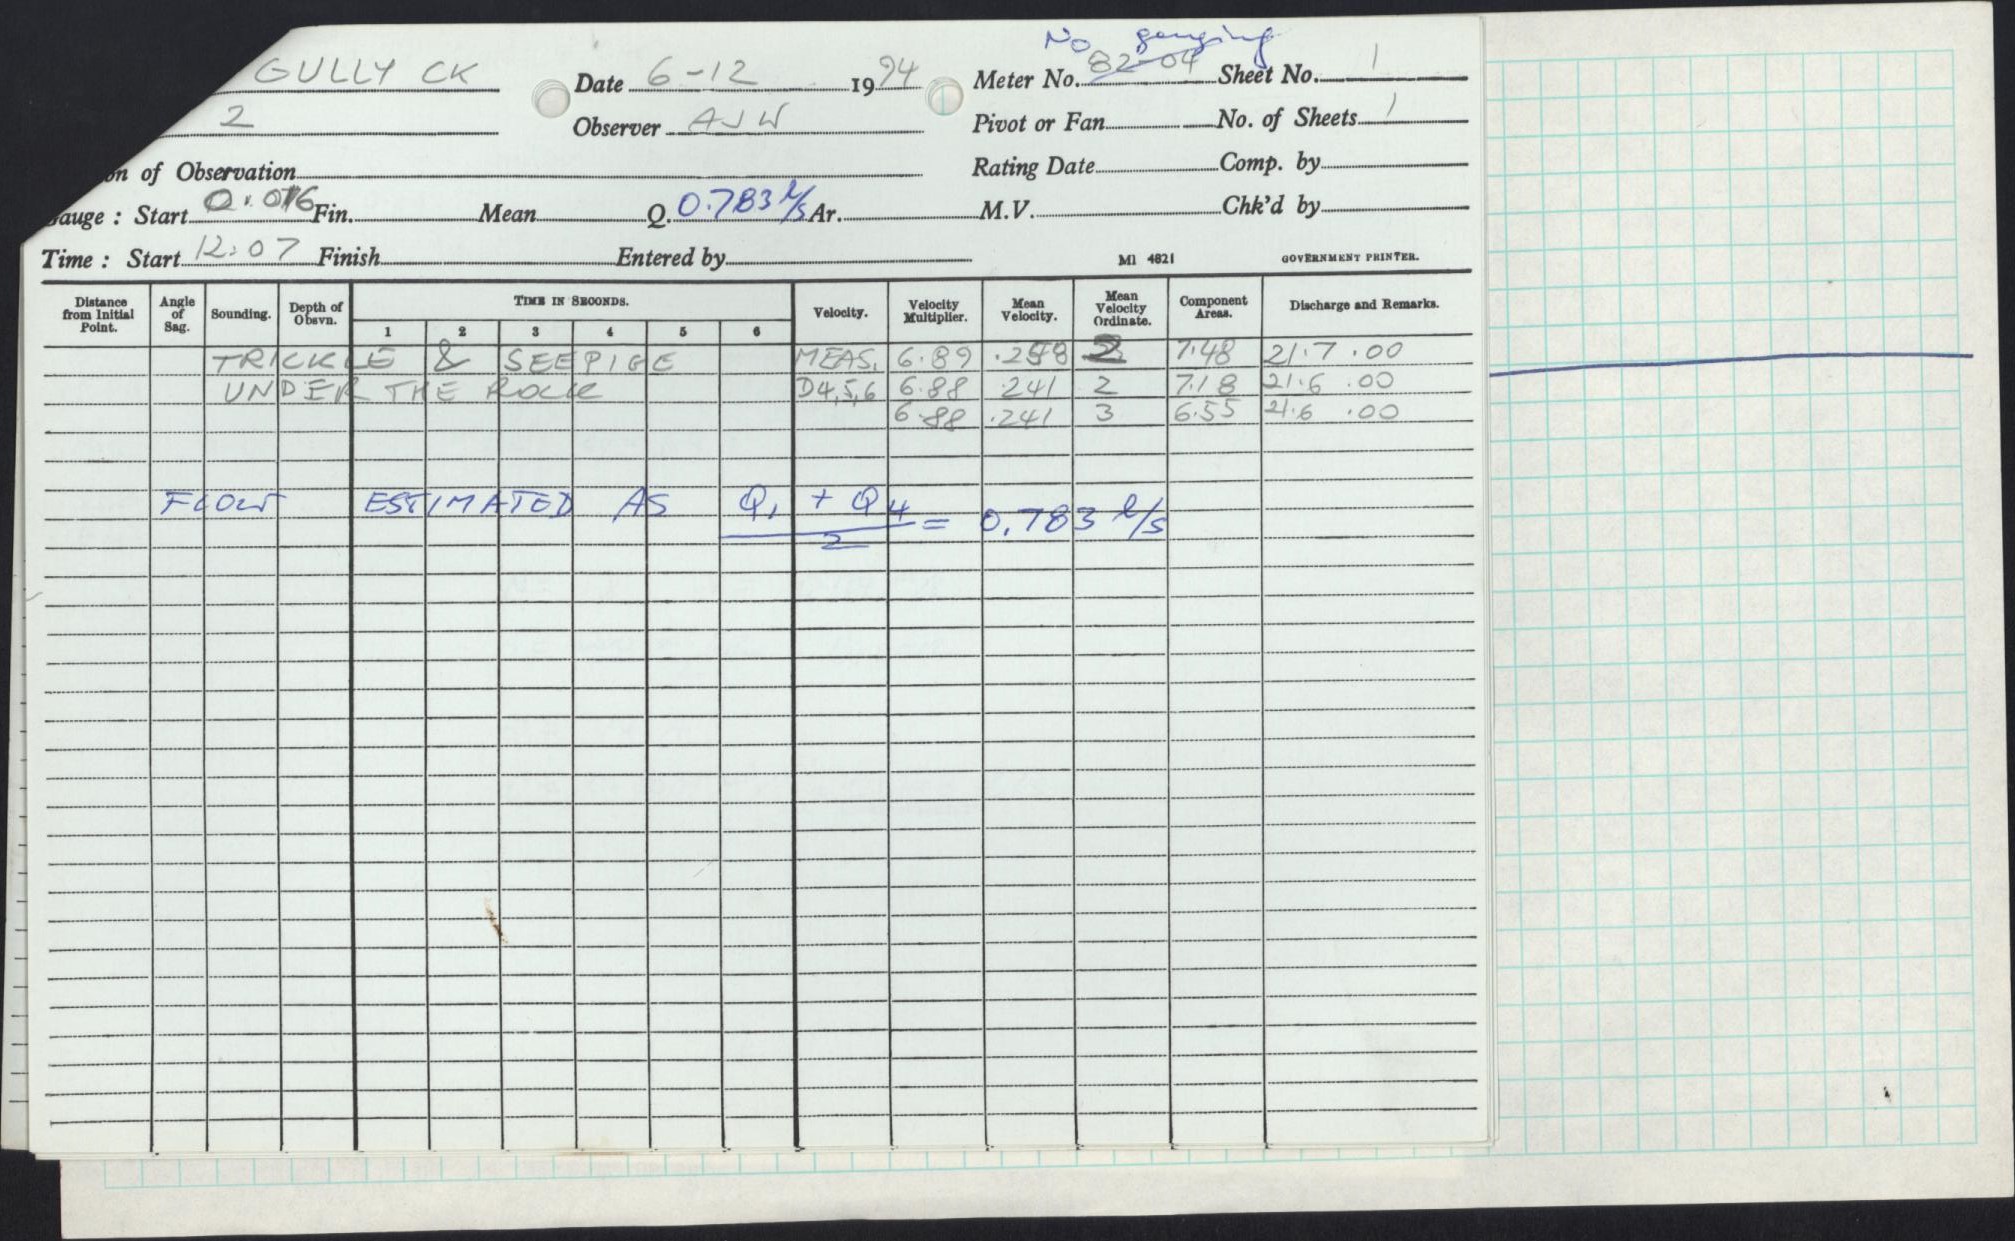 No gauging
GULLY CK Date 6-12 1994 Meter No. 82-04 Sheet No. 1
2 Observer AJW Pivot or Fan No. of Sheets 1
on of Observation Rating Date Comp. by
Gauge : Start 0.016 Fin. Mean Q. 0.783 l/s Ar. M.V. Chk'd by
Time : Start 12:07 Finish Entered by MI 4821 GOVERNMENT PRINTER.
Distance from Initial Point. Angle of Sag. Sounding. Depth of Obsvn. TIME IN SECONDS. Velocity. Velocity Multiplier. Mean Velocity. Mean Velocity Ordinate. Component Areas. Discharge and Remarks.
1 2 3 4 5 6
TRICKLE & SEEPIGE MEAS. 6.89 2 7.48 21.7 .00
UNDER THE ROCK D4,5,6 6.88 .241 2 7.18 21.6 .00
6.88 .241 3 6.55 21.6 .00
FLOW ESTIMATED AS Q1 + Q4 = 0.783 l/s
2